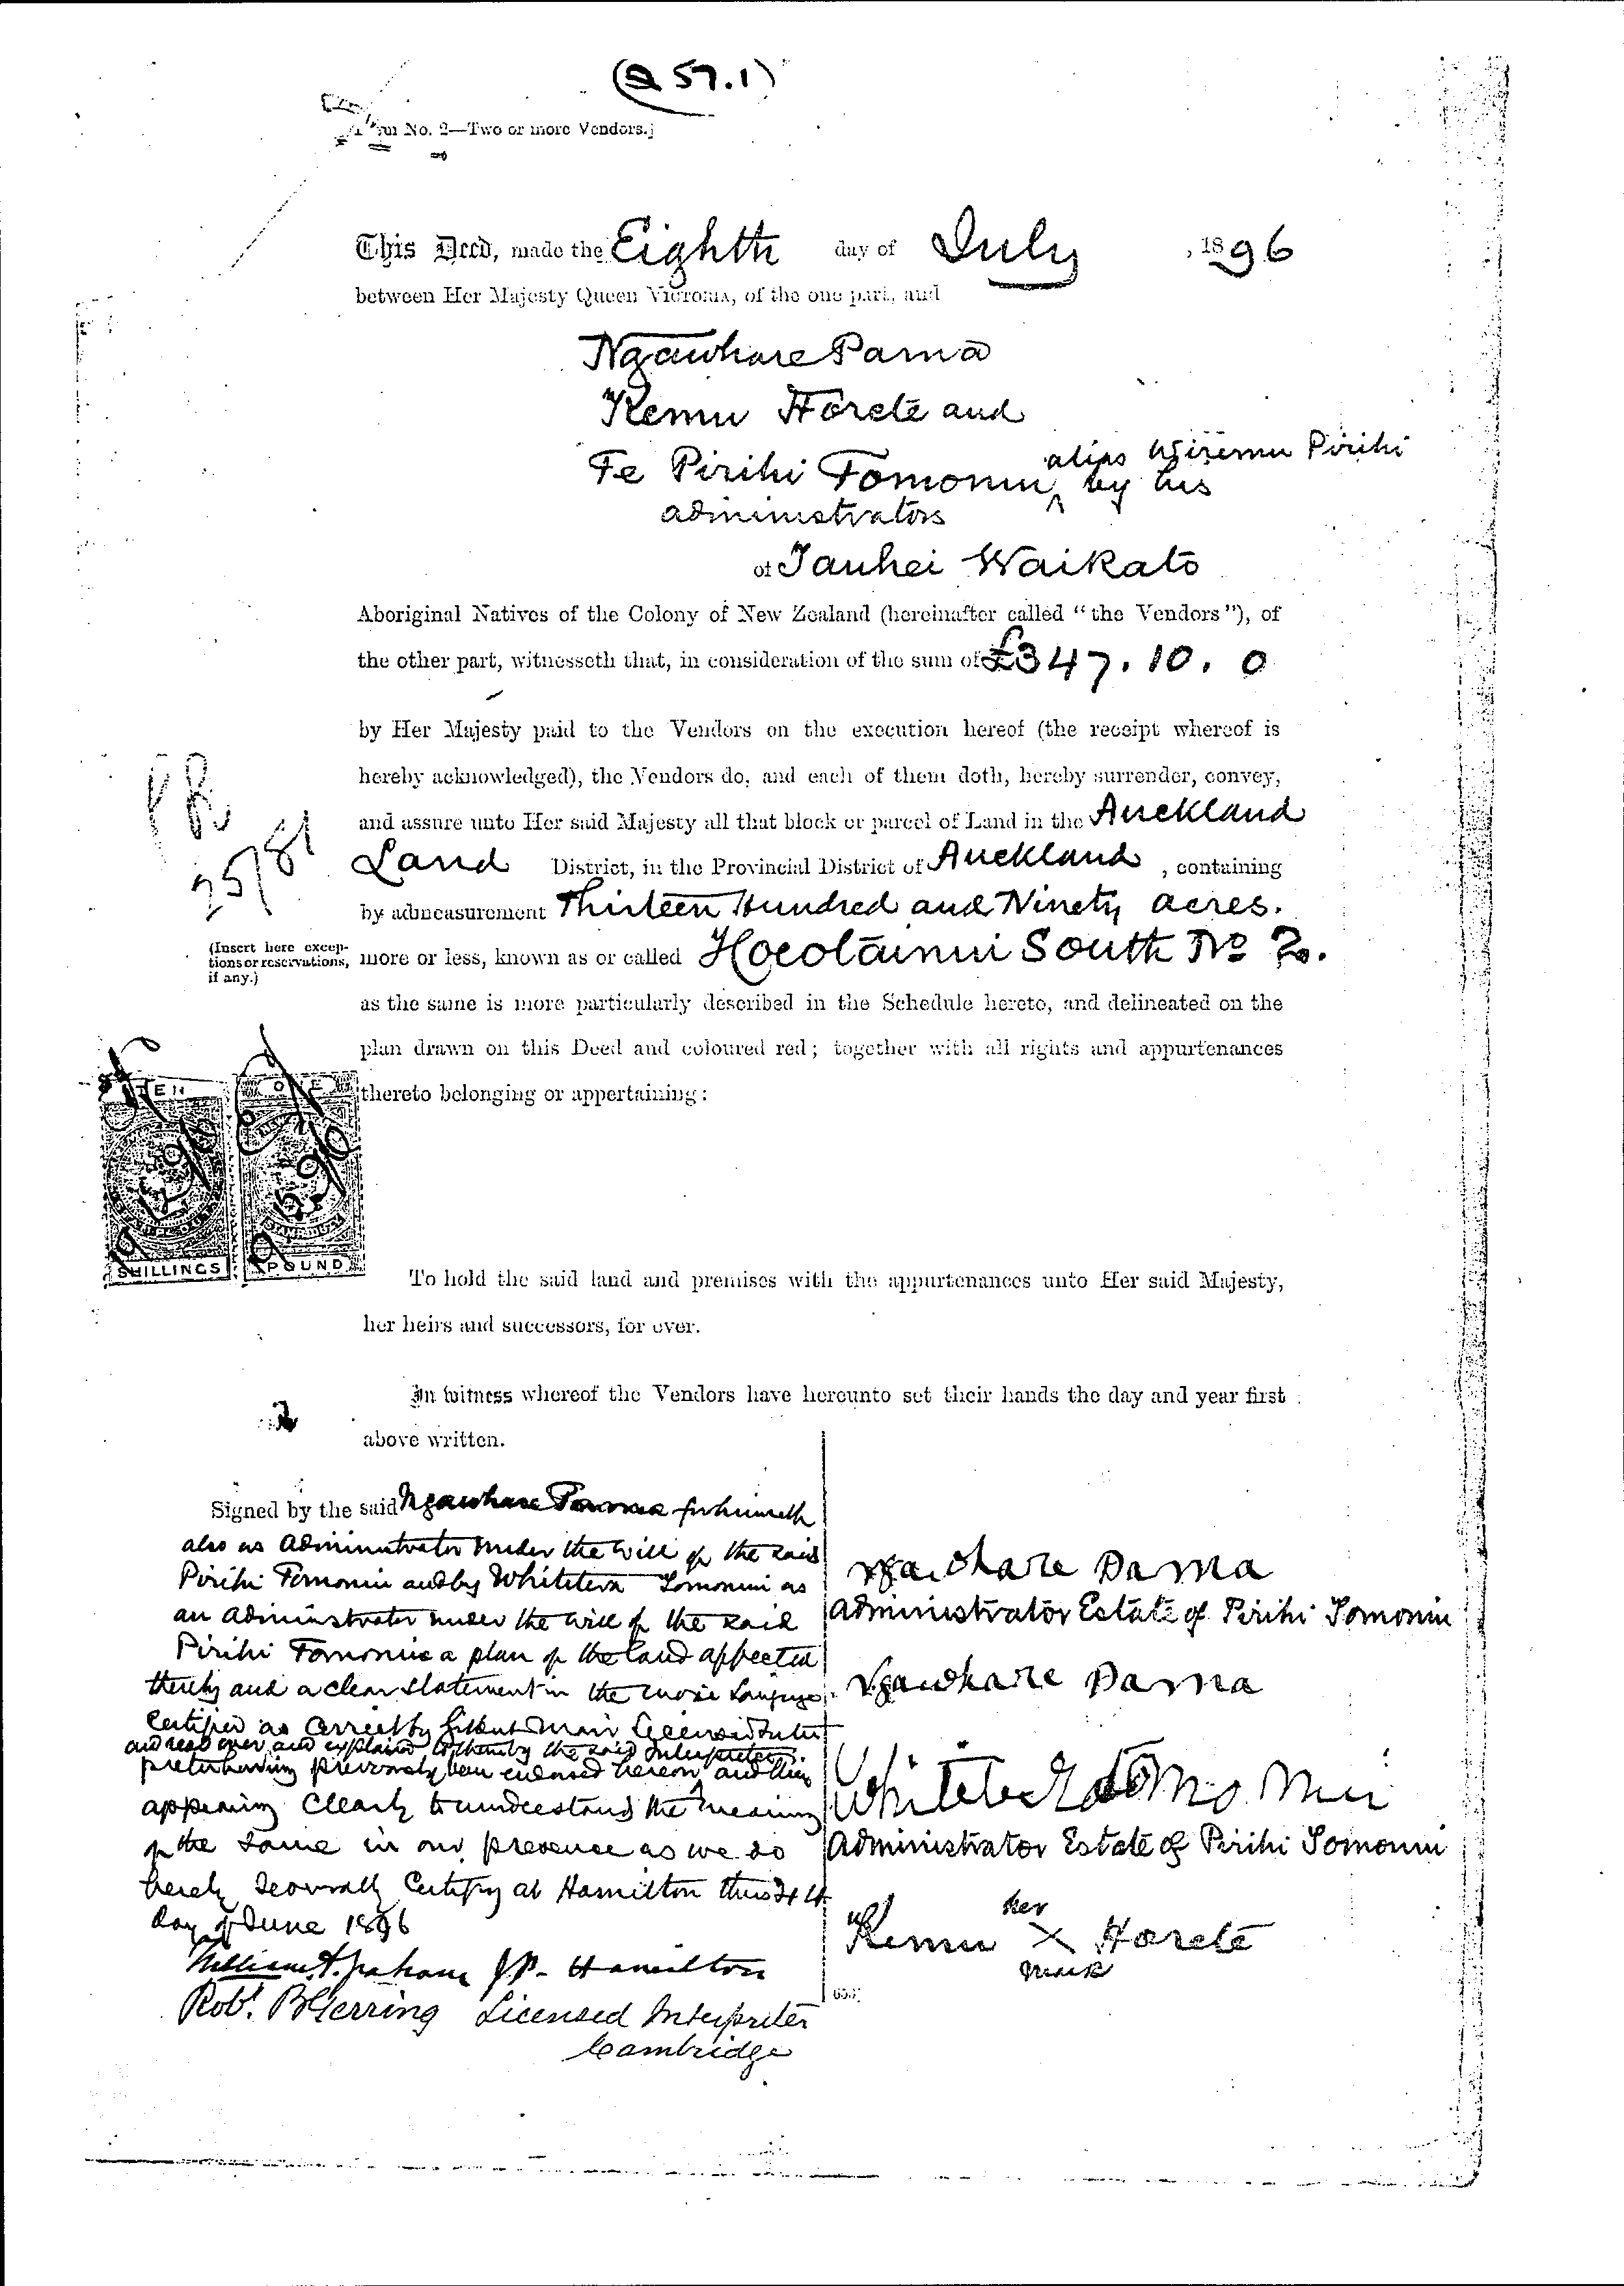 (Q 57.1)
No. 2—Two or more Vendors.]
This Deed, made the Eighth day of July , 1896
between Her Majesty Queen Victoria, of the one part, and
Ngawhare Pama
Remu Horete and
alias Wiremu Pirihi
Te Pirihi Tomonui by his
administrators
of Tauhei Waikato
Aboriginal Natives of the Colony of New Zealand (hereinafter called "the Vendors"), of
the other part, witnesseth that, in consideration of the sum of £347. 10. 0
by Her Majesty paid to the Vendors on the execution hereof (the receipt whereof is
hereby acknowledged), the Vendors do, and each of them doth, hereby surrender, convey,
and assure unto Her said Majesty all that block or parcel of Land in the Auckland
Land District, in the Provincial District of Auckland , containing
by admeasurement Thirteen Hundred and Ninety acres.
(Insert here excep-
tions or reservations,
if any.)
more or less, known as or called Hoeotainui South No 2.
as the same is more particularly described in the Schedule hereto, and delineated on the
plan drawn on this Deed and coloured red; together with all rights and appurtenances
thereto belonging or appertaining:
TEN
SHILLINGS
ONE
POUND
To hold the said land and premises with the appurtenances unto Her said Majesty,
her heirs and successors, for ever.
In witness whereof the Vendors have hereunto set their hands the day and year first
above written.
Signed by the said Ngawhare Pama for himself
also as Administrator under the will of the said
Pirihi Tomonui and by Whitetera Tomonui as
an Administrator under the will of the said
Pirihi Tomonui a plan of the land affected
thereby and a clear statement in the Maori Language
Certified as Correct by Gilbert Mair Licensed Inter
and read over and explained to them by the said Interpreter
preter having previously been endorsed hereon and they
appearing Clearly to understand the meaning
of the Same in our presence as we do
hereby Severally Certify at Hamilton this 24th
day of June 1896
William A. Graham J.P. Hamilton
Robt. B Herring Licensed Interpreter
Cambridge
Ngawhare Pama
Administrator Estate of Pirihi Tomonui
Ngawhare Pama
Whitetera Tomonui
Administrator Estate of Pirihi Tomonui
her
Remu X Horete
mark